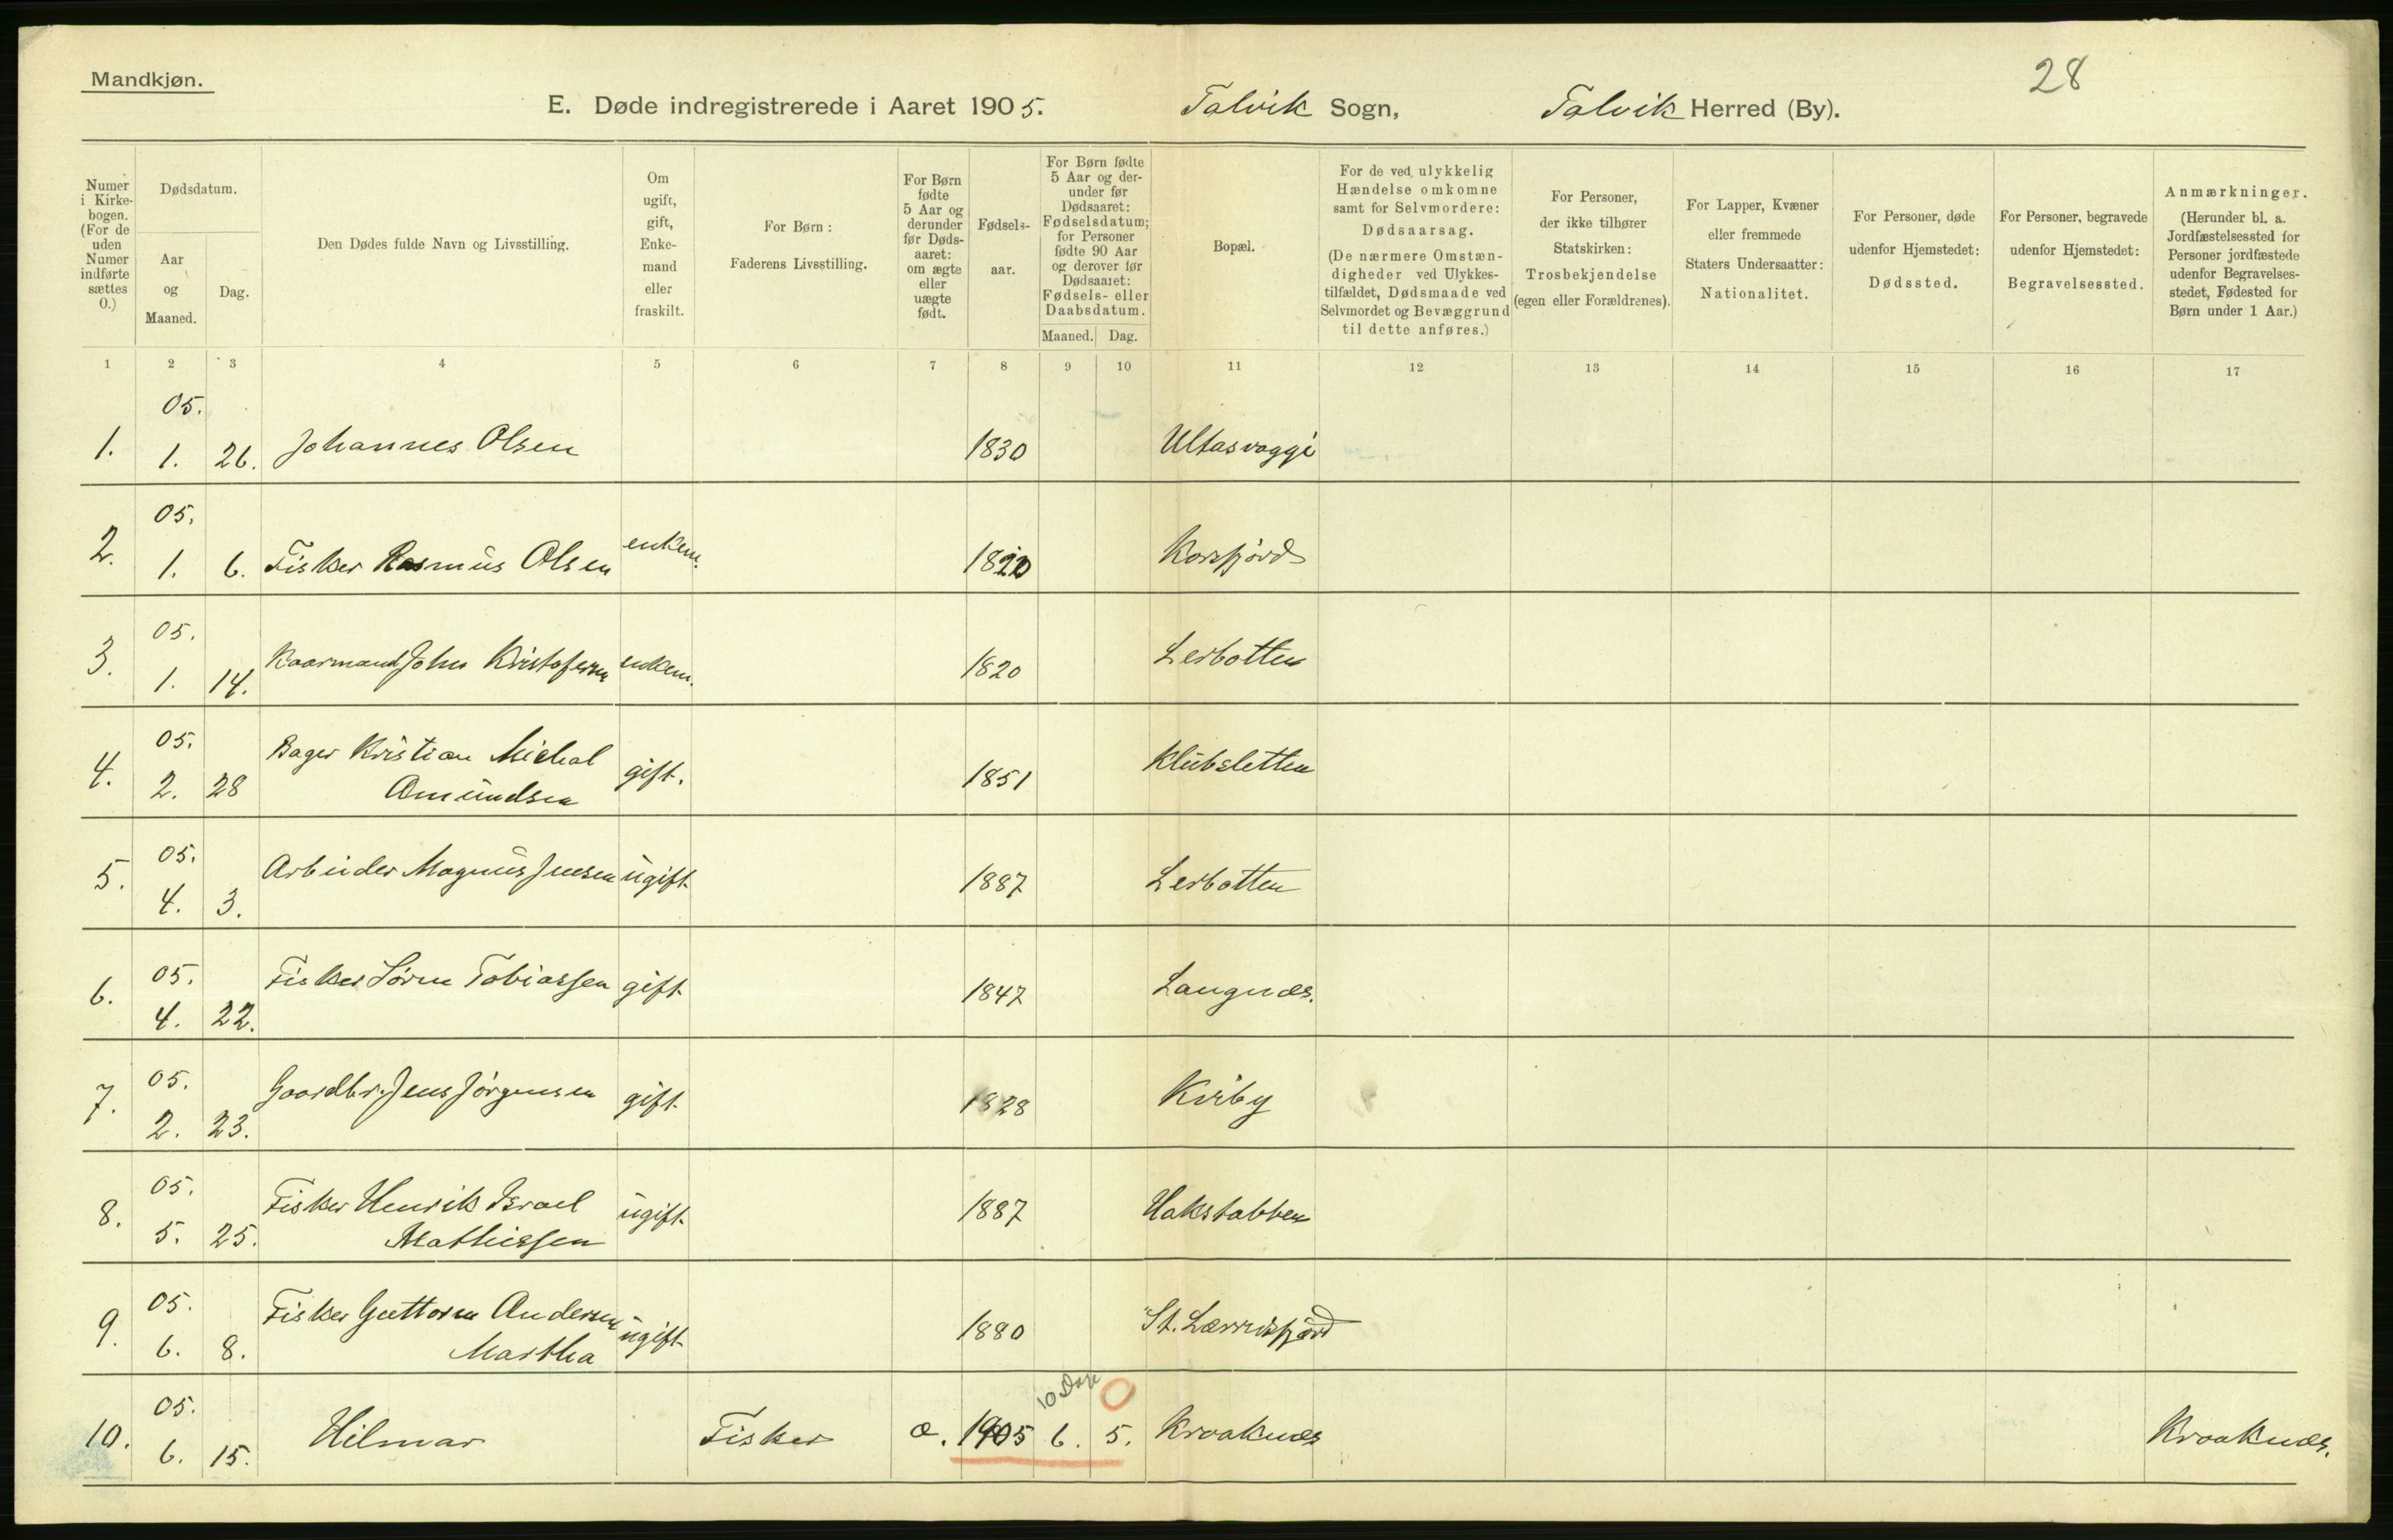 28
Mandkjøn.
E. Døde indregistrerede i Aaret 1905. Talvik Sogn, Talvik Herred (By).
Numer i Kirke- bogen. (For de uden Numer indførte sættes 0.)
Dødsdatum.
Aar og Maaned.
Dag.
Den Dødes fulde Navn og Livsstilling.
Om ugift, gift, Enke- mand eller fraskilt.
For Børn: Faderens Livsstilling.
For Børn fødte 5 Aar og derunder før Døds- aaret: om ægte eller uægte født.
Fødsels- aar.
For Børn fødte 5 Aar og der- under før Dødsaaret: Fødselsdatum; for Personer fødte 90 Aar og derover før Dødsaaret: Fødsels- eller Daabsdatum.
Maaned. Dag.
Bopæl.
For de ved ulykkelig Hændelse omkomne samt for Selvmordere: Dødsaarsag. (De nærmere Omstæn- digheder ved Ulykkes- tilfældet, Dødsmaade ved Selvmordet og Bevæggrund til dette anføres.)
For Personer, der ikke tilhører Statskirken: Trosbekjendelse (egen eller Forældrenes).
For Lapper, Kvæner eller fremmede Staters Undersaatter: Nationalitet.
For Personer, døde udenfor Hjemstedet: Dødssted.
For Personer, begravede udenfor Hjemstedet: Begravelsessted.
Anmærkninger. (Herunder bl. a. Jordfæstelsessted for Personer jordfæstede udenfor Begravelses- stedet, Fødested for Børn under 1 Aar.)
1 2 3 4 5 6 7 8 9 10 11 12 13 14 15 16 17
05.
1. 1. 26. Johannes Olsen 1830 Ultasvaggi
05.
2. 1. 6. Fisker Rasmus Olsen enkem. 1820 Korsfjord
05.
3. 1. 14. Kaarmand John Kristofersen enkem. 1820 Lerbotten
05.
4. 2. 28 Bager Kristian Michal gift. 1851 Klubsletten
Amundsen
05.
5. 4. 3. Arbeider Magnus Jensen ugift. 1887 Lerbotten
05.
6. 4. 22. Fisker Søren Tobiassen gift. 1847 Langnæs.
05.
7. 2. 23. Gaardbr. Jens Jørgensen gift. 1828 Kirby
05.
8. 5. 25. Fisker Henrik Israel ugift. 1887 Hakstabben
Mathissen
05.
9. 6. 8. Fisker Guttorm Andersen ugift. 1880 St. Lærrisfjord
Martha
05. 10 Dage 0
10. 6. 15. Hilmar Fisker æ. 1905 6. 5. Kraaknæs Kraaknæs.